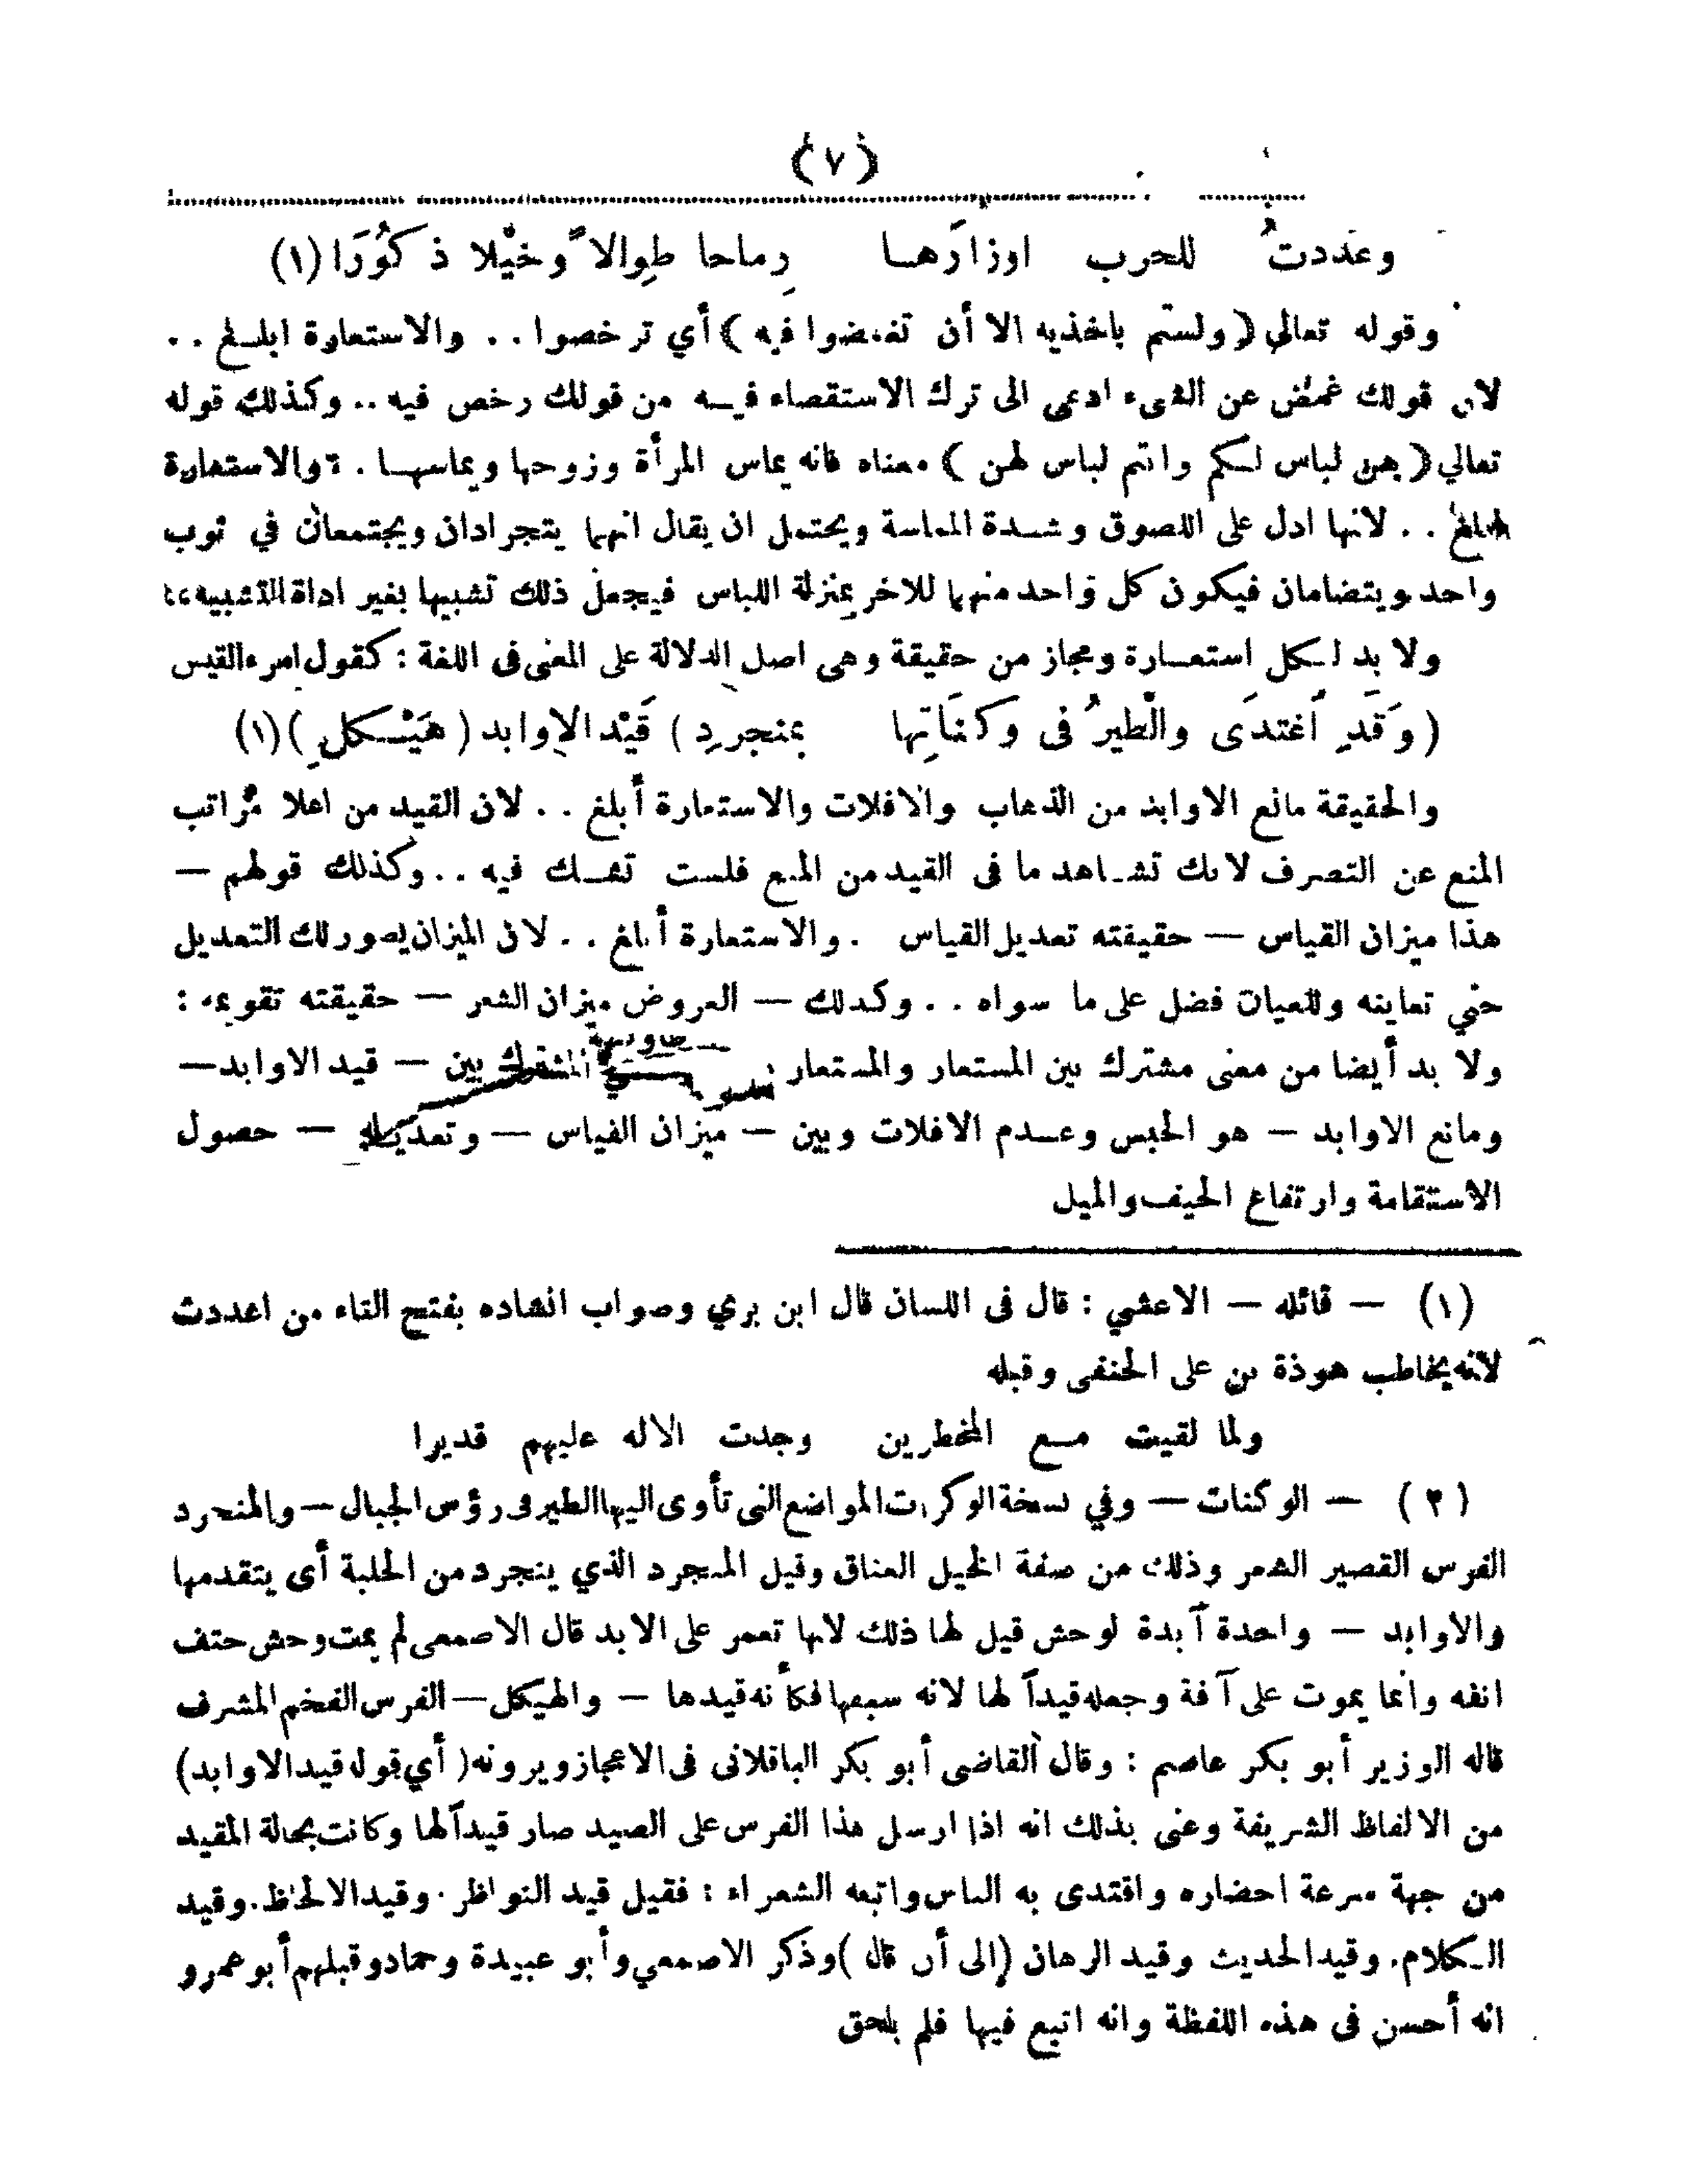 (٧)
وعددتُ للحرب اوزارَها رِماحا طِوالاً وخيْلا ذكُورَا (١)
وقوله تعالى (ولستم باخذيه الا أن تغمضوا فيه) أي ترخصوا . . والاستعارة ابلغ . .
لان قولك غمض عن الشيء ادعى الى ترك الاستقصاء فيه من قولك رخص فيه . . وكذلك قوله
تعالي (هن لباس لكم وانتم لباس لهن) معناه فانه يماس المرأة وزوجها ويماسها . والاستعارة
ابلغ . . لانها ادل على اللصوق وشدة المماسة ويحتمل ان يقال انهما يتجرادان ويجتمعان في ثوب
واحد ويتضامان فيكون كل واحد منهما للاخر بمنزلة اللباس فيجعل ذلك تشبيها بغير اداة التشبيه
ولا بد لكل استعارة ومجاز من حقيقة وهى اصل الدلالة على المعنى فى اللغة : كقول امرء القيس
(وَقَد اَغتدَى والْطيرُ فى وكنَاتِها بمنجردِ) قَيْد الاِوابد (هَيْكلِ) (١)
والحقيقة مانع الاوابد من الذهاب والافلات والاستعارة أبلغ . . لان القيد من اعلا مراتب
المنع عن التصرف لانك تشاهد ما فى القيد من المنع فلست تشك فيه . . وكذلك قولهم —
هذا ميزان القياس — حقيقته تعديل القياس . والاستعارة أبلغ . . لان الميزان يصور لك التعديل
حتي تعاينه وللعيان فضل على ما سواه . . وكذلك — العروض ميزان الشعر — حقيقته تقويمه :
ولا بد أيضا من معنى مشترك بين المستعار والمستعار المشترك بين — قيد الاوابد —
ومانع الاوابد — هو الحبس وعدم الافلات وبين — ميزان القياس — وتعديله — حصول
الاستقامة وارتفاع الحيف والميل
(١) — قائله — الاعشي : قال فى اللسان قال ابن بري وصواب انشاده بفتح التاء من اعددت
لانه يخاطب هوذة بن على الحنفى وقبله
ولما لقيت مع المخطرين وجدت الاله عليهم قديرا
(٢) — الوكنات — وفي نسخة الوكرات المواضع التى تأوى اليها الطير فى رؤس الجبال — والمنجرد
الفرس القصير الشعر وذلك من صفة الخيل العتاق وقيل المنجرد الذي ينجرد من الحلبة أى يتقدمها
والاوابد — واحدة آبدة لوحش قيل لها ذلك لانها تعمر على الابد قال الاصمعى لم يمت وحش حتف
انفه وانما يموت على آفة وجعله قيداً لها لانه سبقها فكأنه قيدها — والهيكل — الفرس الفخم المشرف
قاله الوزير أبو بكر عاصم : وقال القاضى أبو بكر الباقلانى فى الاعجاز ويرونه (أي قوله قيد الاوابد)
من الالفاظ الشريفة وعنى بذلك انه اذا ارسل هذا الفرس على الصيد صار قيداً لها وكانت بحالة المقيد
من جهة سرعة احضاره واقتدى به الناس واتبعه الشعراء : فقيل قيد النواظر . وقيد الالحاظ . وقيد
الكلام . وقيد الحديث وقيد الرهان (الى أن قال) وذكر الاصمعي وأبو عبيدة وحماد وقبلهم أبو عمرو
انه أحسن فى هذه اللفظة وانه اتبع فيها فلم يلحق